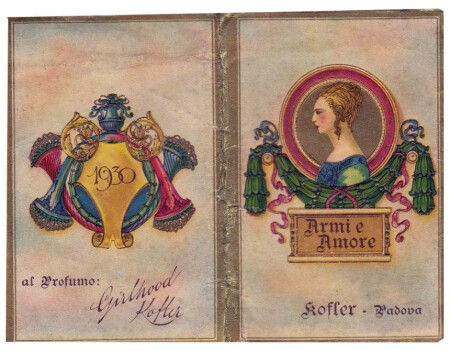 1930
al Profumo:
Girlhood
Kofler
Armi e
Amore
Kofler - Padova